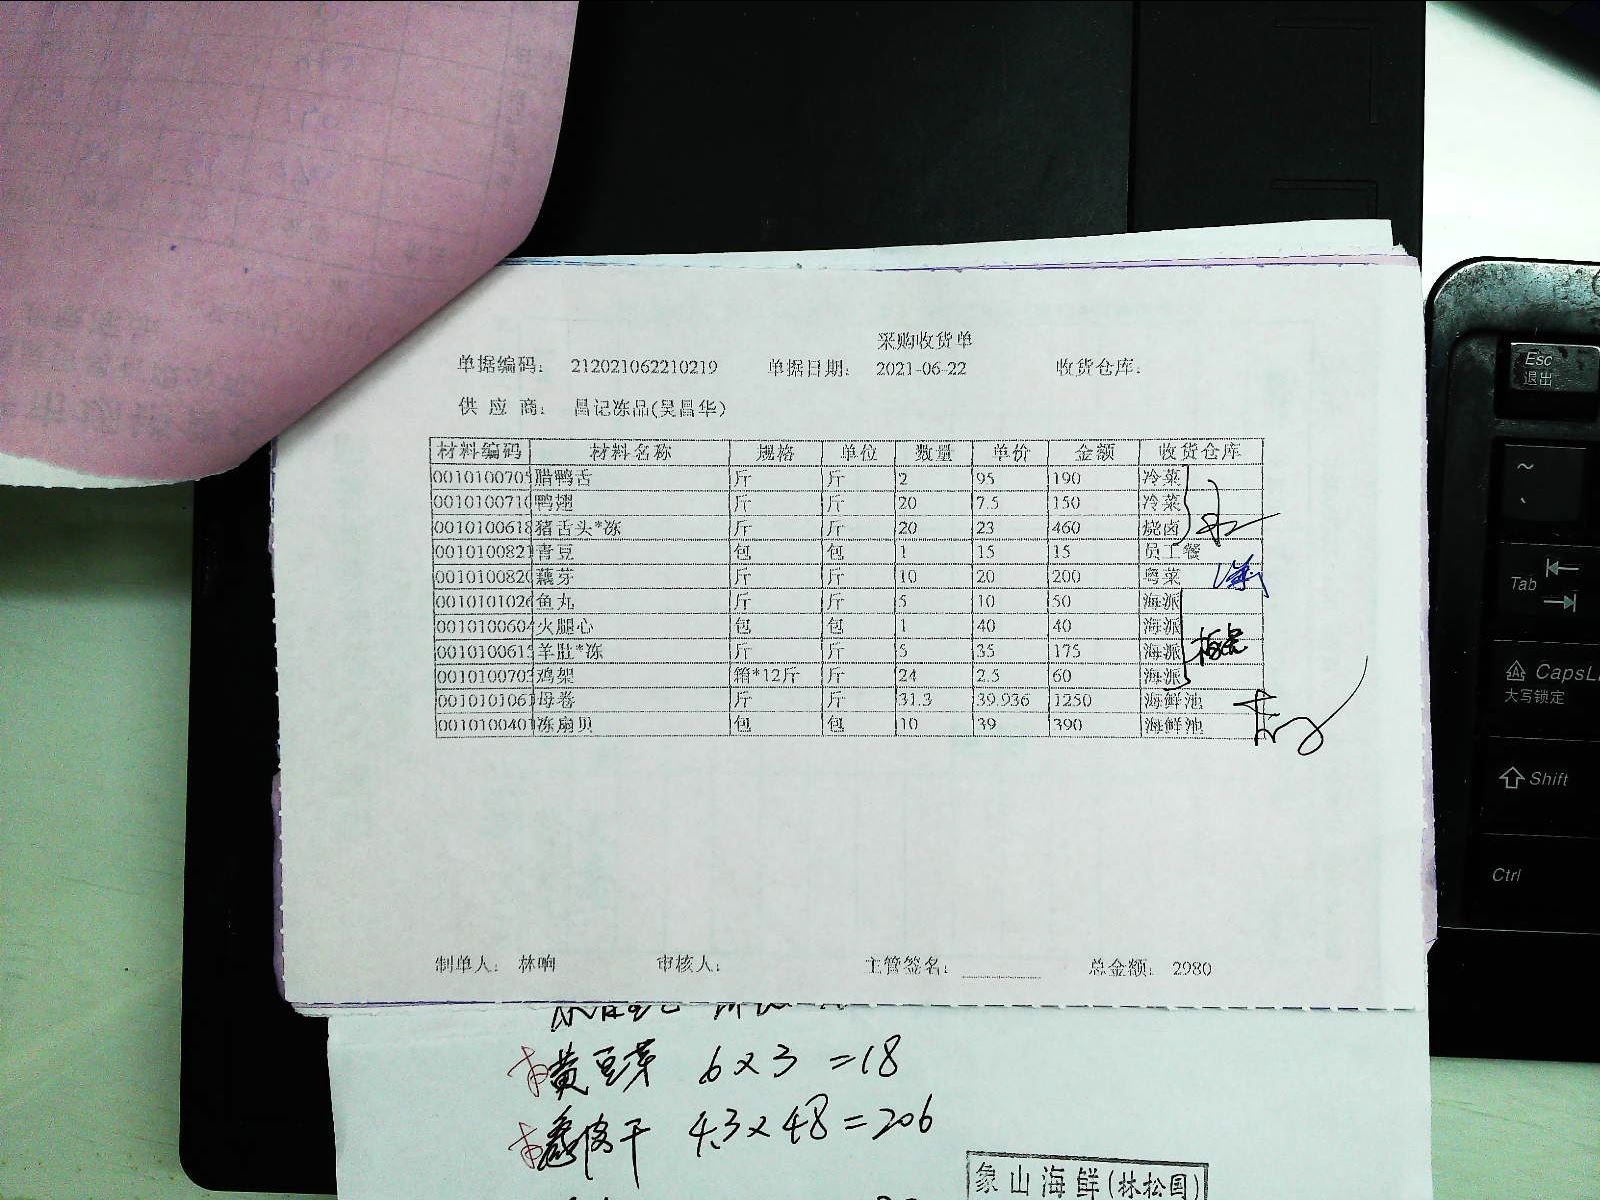 采购收货单
单据编码： 212021062210219 单据日期： 2021-06-22 收货仓库：
供 应 商： 昌记冻品(吴昌华)
材料编码 材料名称 规格 单位 数量 单价 金额 收货仓库
0010100705 腊鸭舌 斤 斤 2 95 190 冷菜
0010100710 鸭翅 斤 斤 20 7.5 150 冷菜
0010100618 猪舌头*冻 斤 斤 20 23 460 烧卤
0010100821 青豆 包 包 1 15 15 员工餐
0010100820 藕芽 斤 斤 10 20 200 粤菜
0010101026 鱼丸 斤 斤 5 10 50 海派
0010100604 火腿心 包 包 1 40 40 海派
0010100615 羊肚*冻 斤 斤 5 35 175 海派
0010100703 鸡架 箱*12斤 斤 24 2.5 60 海派
0010101061 母卷 斤 斤 31.3 39.936 1250 海鲜池
0010100401 冻扇贝 包 包 10 39 390 海鲜池
制单人： 林响 审核人： 主管签名： 总金额： 2980
黄豆芽 6×3=18
4.3×48=206
象山海鲜(林松国)
Esc
退出
~
Tab
CapsL
大写锁定
Shift
Ctrl